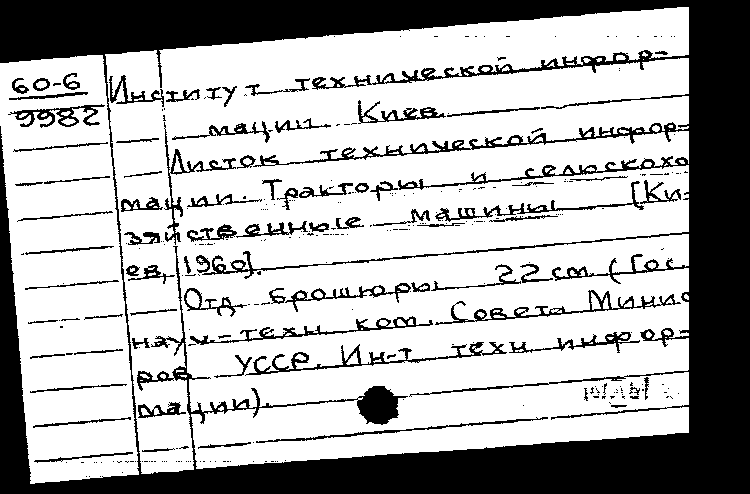 60-6
9982
Институт технической инфор-
мации. Киев.
Листок технической инфор-
мации. Тракторы и сельскохо
зяйственные машины [Ки-
ев, 1960].
Отд. брошюры 22 см. (Гос.
науч-техн ком. Совета Минис
ров УССР. Ин-т техн инфор-
мации).